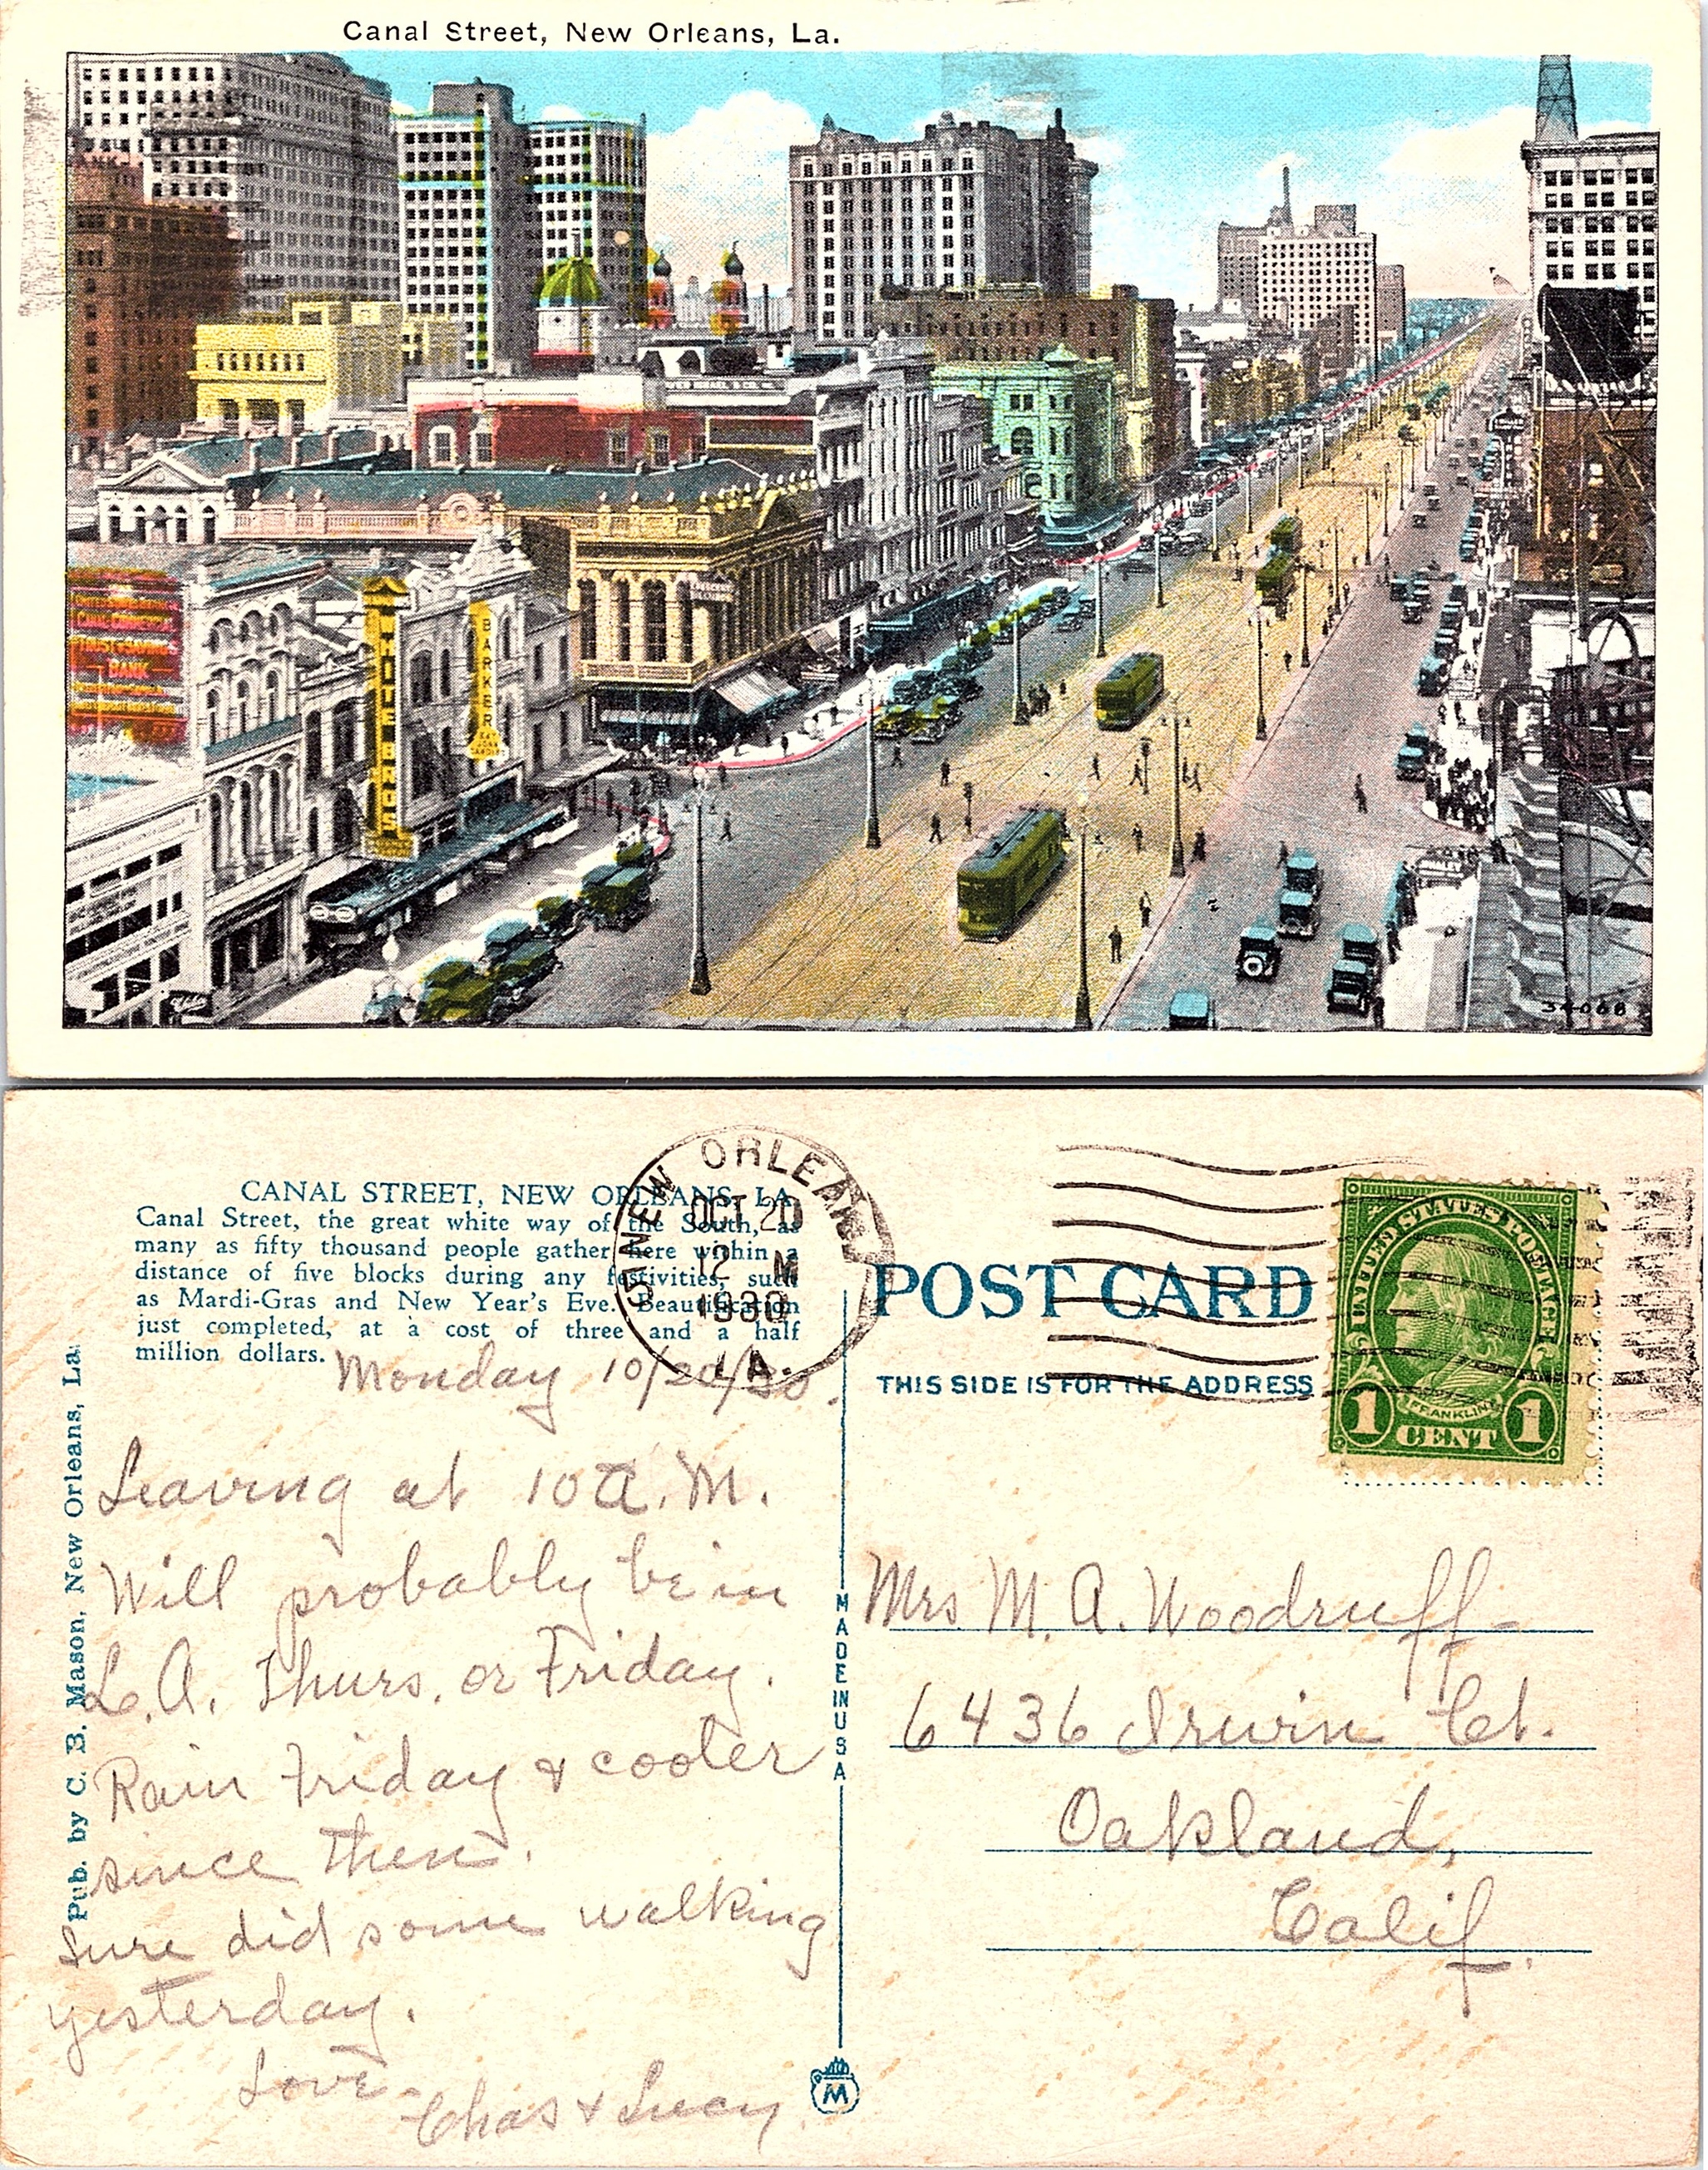 Canal Street, New Orleans, La.
VER ISRAEL & CO.
CANAL-COMMERCIAL
TRUST & SAVINGS
BANK
WHITE BROS
BARKER
34068
CANAL STREET, NEW ORLEANS, LA.
Canal Street, the great white way of the South, as
many as fifty thousand people gather here within a
distance of five blocks during any festivities, such
as Mardi-Gras and New Year's Eve. Beautification
just completed, at a cost of three and a half
million dollars.
NEW ORLEANS
OCT 20
12 M
1930
LA.
POST CARD
THIS SIDE IS FOR THE ADDRESS
UNITED STATES POSTAGE
FRANKLIN
1 CENT 1
Pub. by C. B. Mason, New Orleans, La.
Monday 10/20/30.
Leaving at 10 A.M.
Will probably be in
L.A. Thurs. or Friday.
Rain Friday & cooler
since then.
Sure did some walking
yesterday.
Love
Chas & Lucy.
MADE IN USA
M
Mrs. M. A. Woodruff
6436 Irwin Ct.
Oakland,
Calif.